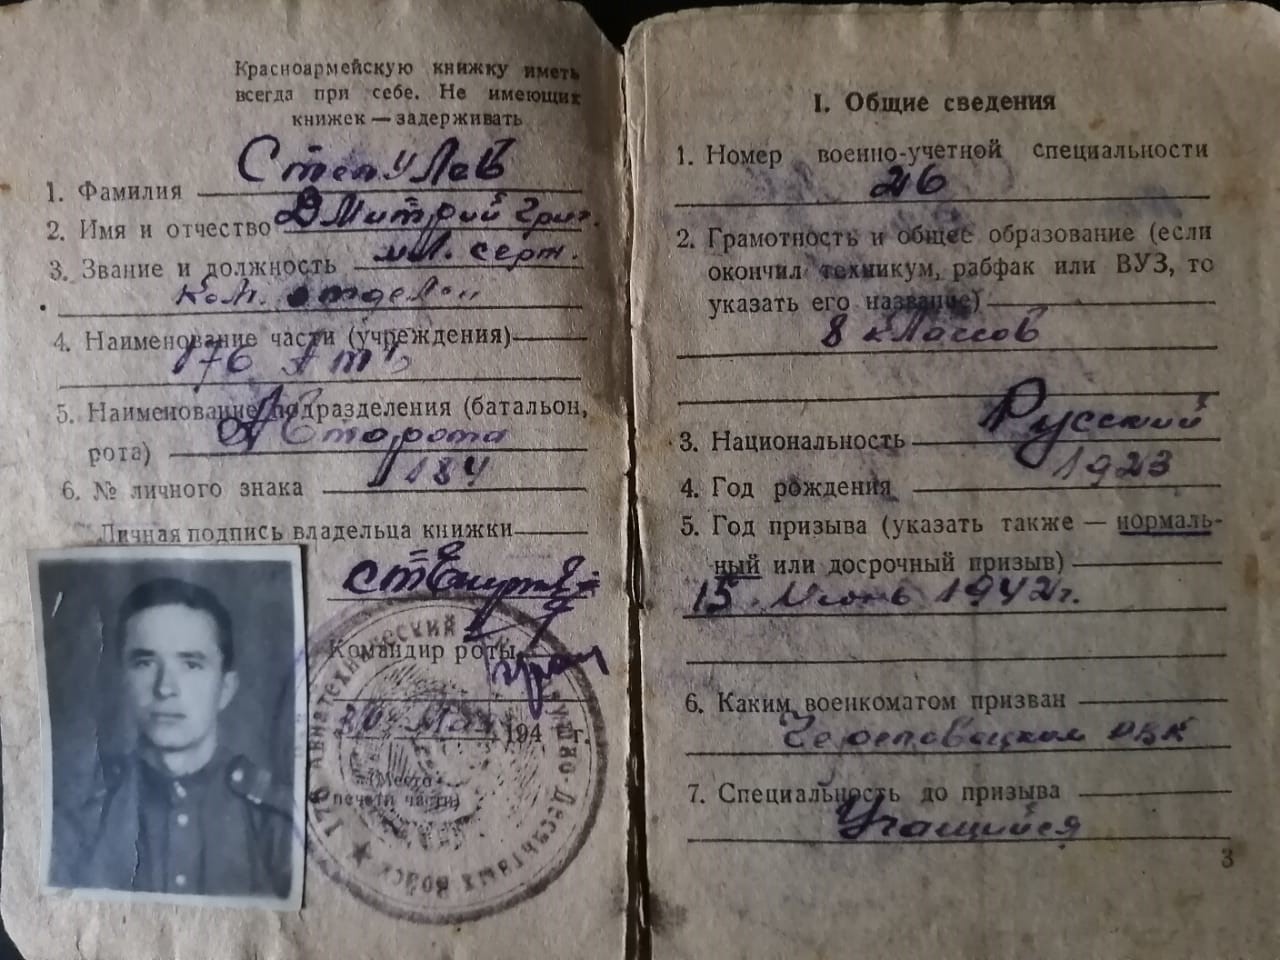 Красноармейскую книжку иметь
всегда при себе. Не имеющих
книжек — задерживать
1. Фамилия Степулев
2. Имя и отчество Дмитрий Григ.
3. Звание и должность мл. серж.
ком. отделен
4. Наименование части (учреждения)
176
5. Наименование подразделения (батальон,
рота) Авторота
6. № личного знака 184
Личная подпись владельца книжки
Командир роты
30 Мая 194 г.
(Место
печати части)
176 Авиатехнический Воздушно-Десантных Войск
I. Общие сведения
1. Номер военно-учетной специальности
26
2. Грамотность и общее образование (если
окончил техникум, рабфак или ВУЗ, то
указать его название)
8 классов
3. Национальность Русский
4. Год рождения 1923
5. Год призыва (указать также — нормаль-
ный или досрочный призыв)
15 Июнь 1942 г.
6. Каким военкоматом призван
Череповецким
7. Специальность до призыва
Учащийся
3